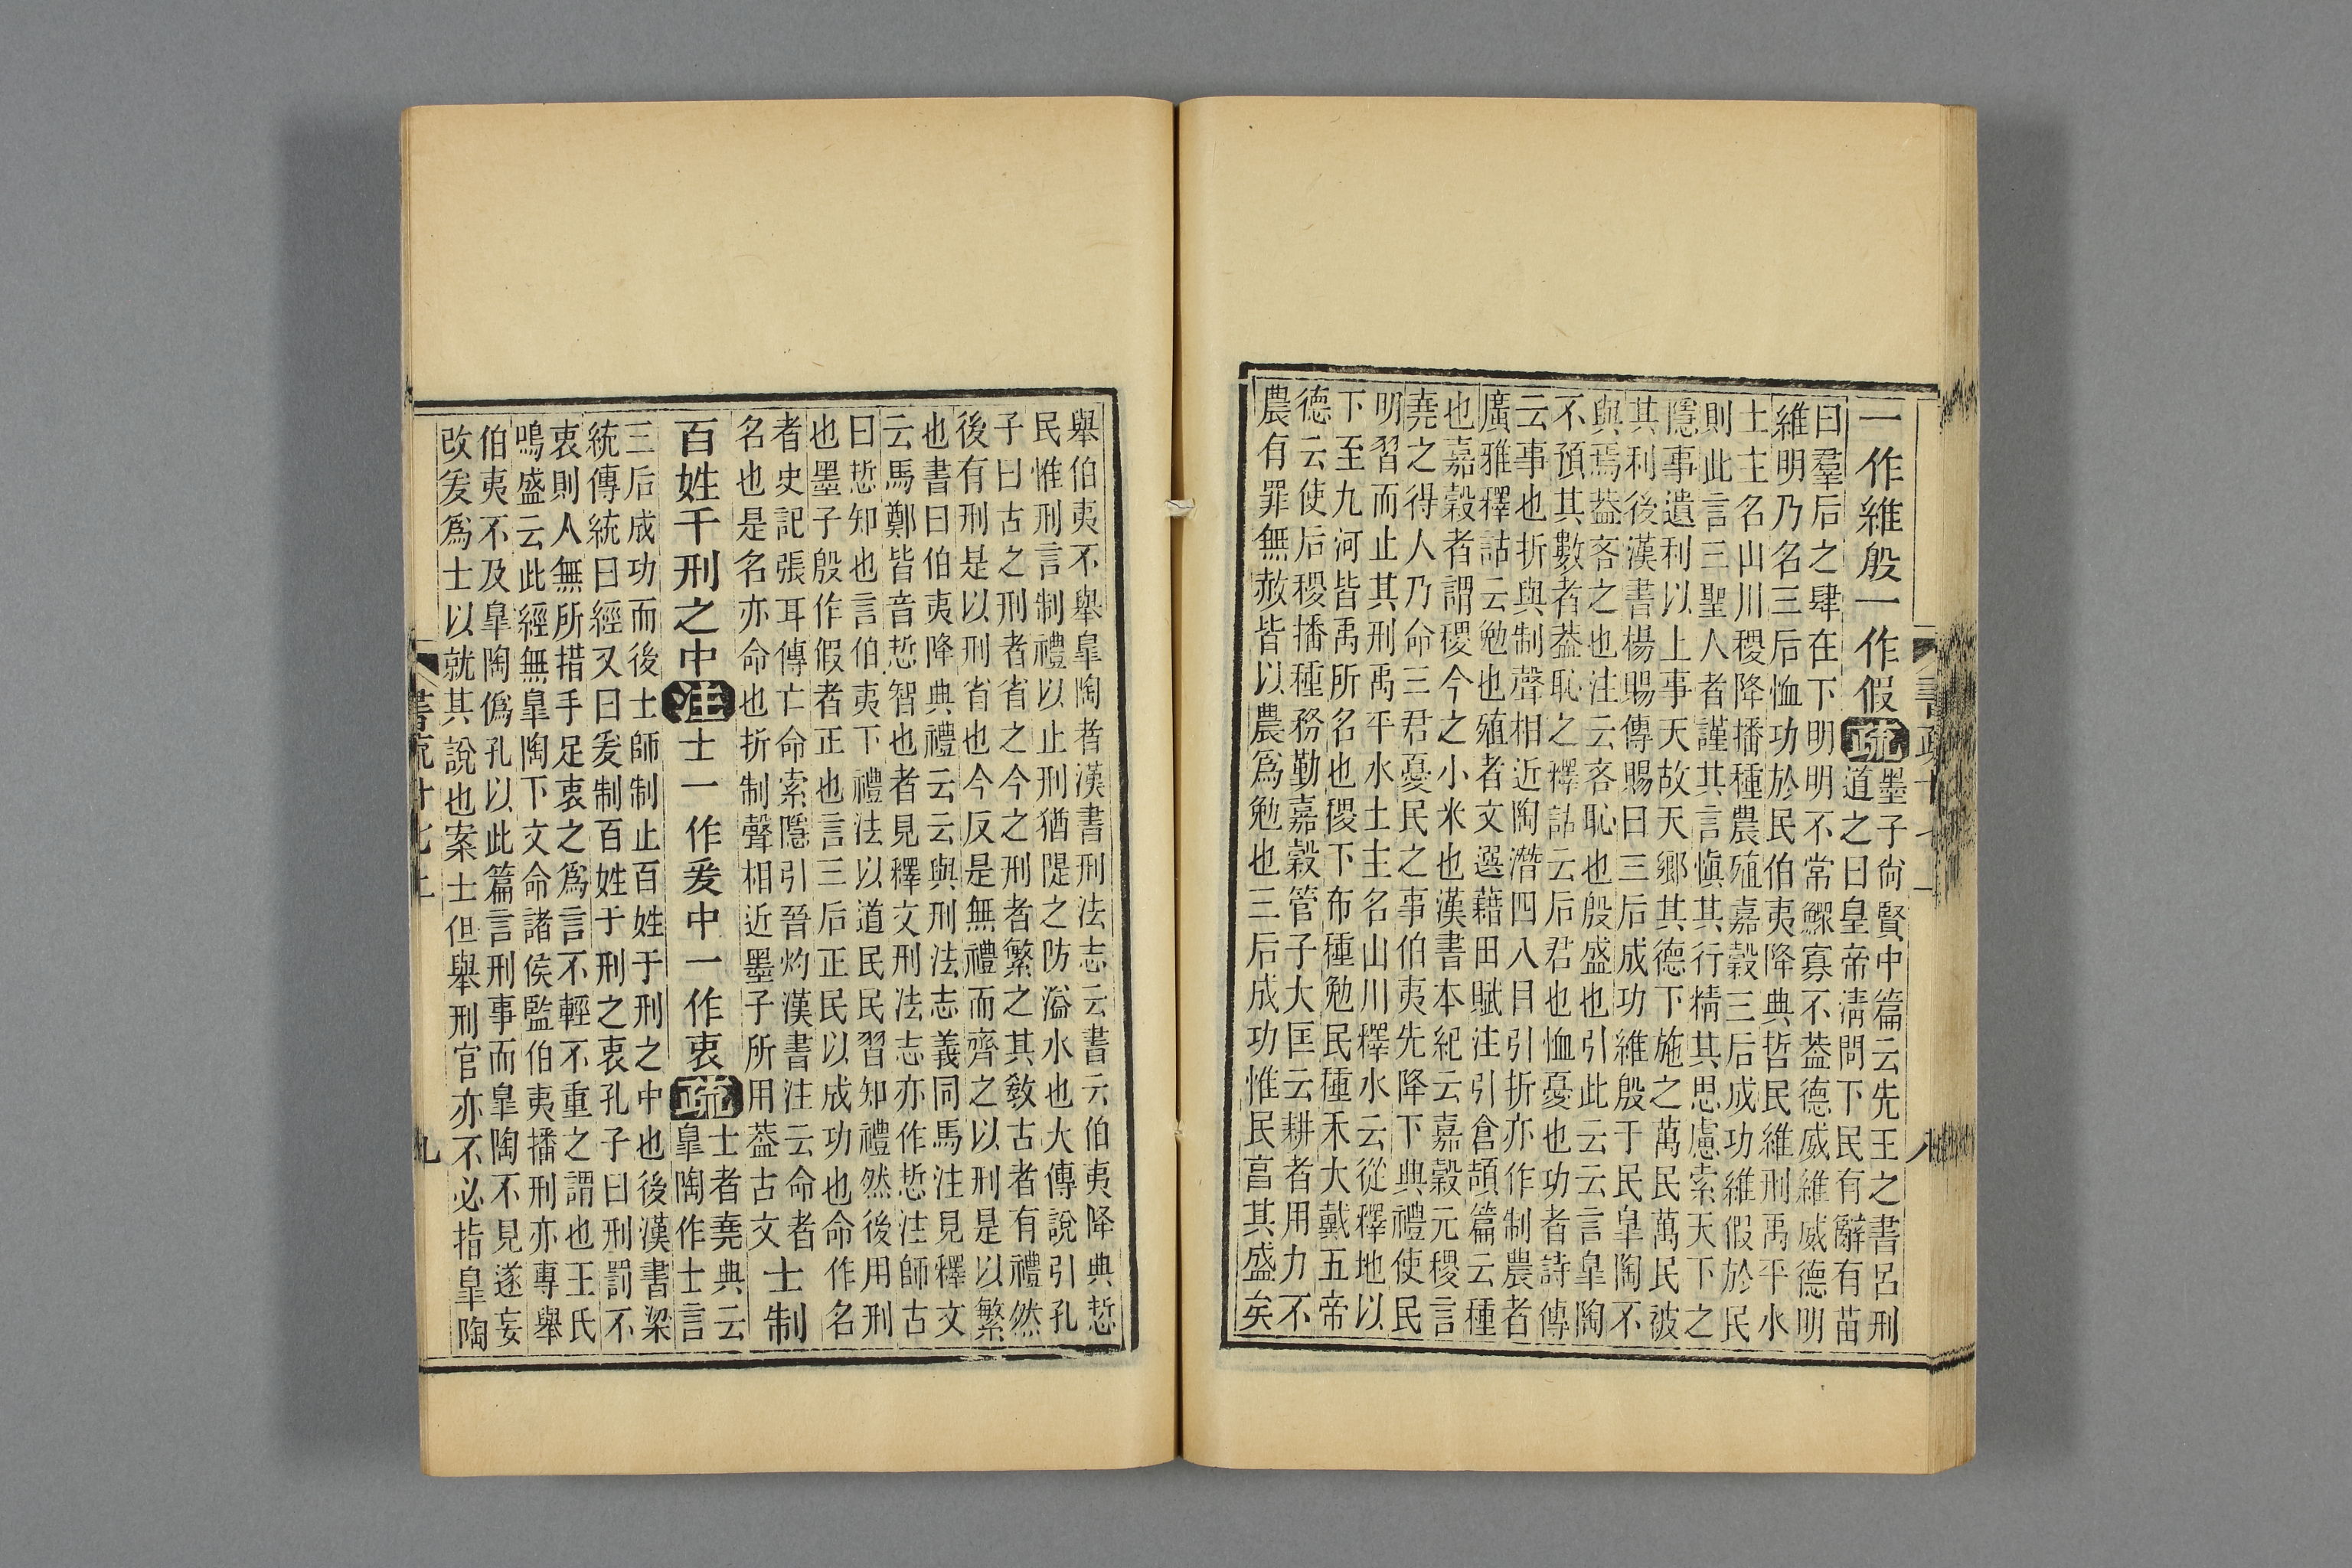 一作維殷一作假疏墨子尚賢中篇云先王之書呂刑
道之曰皇帝清問下民有辭有苗
曰羣后之肆在下明明不常鰥寡不葢德威維威德明
維明乃名三后恤功於民伯夷降典哲民維刑禹平水
土主名山川稷降播種農殖嘉穀三后成功維假於民
則此言三聖人者謹其言慎其行精其思慮索天下之
隱事遺利以上事天故天鄉其德下施之萬民萬民被
其利後漢書楊賜傳賜曰三后成功維殷于民皐陶不
與焉葢吝之也注云吝恥也殷盛也引此云云言皐陶
不預其數者葢恥之釋詁云后君也恤憂也功者詩傳
云事也折與制聲相近陶潛四八目引折亦作制農者
廣雅釋詁云勉也殖者文選藉田賦注引倉頡篇云種
也嘉穀者謂稷今之小米也漢書本紀云嘉穀元稷言
堯之得人乃命三君憂民之事伯夷先降下典禮使民
明習而止其刑禹平水土主名山川釋水云從釋地以
下至九河皆禹所名也稷下布種勉民種禾大戴五帝
德云使后稷播種務勤嘉穀管子大匡云耕者用力不
農有罪無赦皆以農爲勉也三后成功惟民富其盛矣
書疏十七上
八
舉伯夷不舉皐陶者漢書刑法志云書云伯夷降典悊
民惟刑言制禮以止刑猶隄之防溢水也大傳說引孔
子曰古之刑者省之今之刑者繁之其敎古者有禮然
後有刑是以刑省也今反是無禮而齊之以刑是以繁
也書曰伯夷降典禮云云與刑法志義同馬注見釋文
云馬鄭皆音悊智也者見釋文刑法志亦作悊注師古
曰悊知也言伯夷下禮法以道民民習知禮然後用刑
也墨子殷作假者正也言三后正民以成功也命作名
者史記張耳傳亡命索隱引晉灼漢書注云命者
名也是名亦命也折制聲相近墨子所用葢古文
士制
百姓于刑之中注士一作爰中一作衷疏士者堯典云
皐陶作士言
三后成功而後士師制止百姓于刑之中也後漢書梁
統傳統曰經又曰爰制百姓于刑之衷孔子曰刑罰不
衷則人無所措手足衷之爲言不輕不重之謂也王氏
鳴盛云此經無皐陶下文命諸侯監伯夷播刑亦專舉
伯夷不及皐陶僞孔以此篇言刑事而皐陶不見遂妄
改爰爲士以就其說也案士但舉刑官亦不必指皐陶
書疏十七上
九